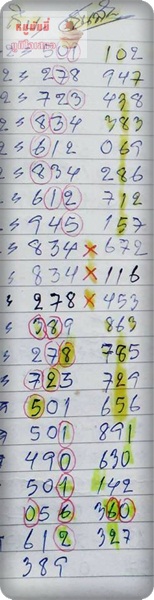 หมูมณี
501 102
278 947
723 438
834 383
612 069
834 286
612 712
945 157
834 × 672
834 × 116
278 × 453
389 863
278 785
723 729
501 656
501 891
490 630
501 142
056 360
612 327
389